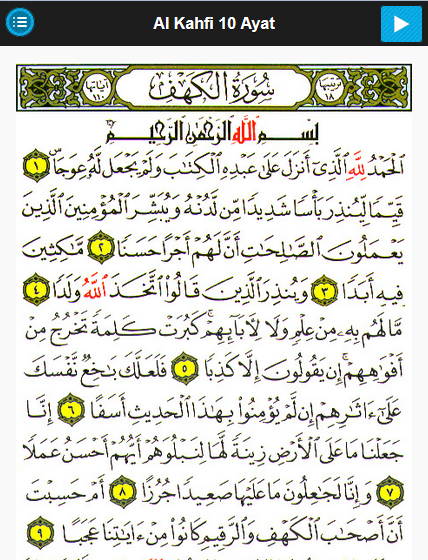 Al Kahfi 10 Ayat
ترتيبها ١٨ سُورَةُ الْكَهْفِ آياتها ١١٠
بِسْمِ اللَّهِ الرَّحْمَٰنِ الرَّحِيمِ
الْحَمْدُ لِلَّهِ الَّذِي أَنْزَلَ عَلَىٰ عَبْدِهِ الْكِتَابَ وَلَمْ يَجْعَلْ لَهُ عِوَجًا ۜ ١
قَيِّمًا لِيُنْذِرَ بَأْسًا شَدِيدًا مِنْ لَدُنْهُ وَيُبَشِّرَ الْمُؤْمِنِينَ الَّذِينَ
يَعْمَلُونَ الصَّالِحَاتِ أَنَّ لَهُمْ أَجْرًا حَسَنًا ٢ مَاكِثِينَ
فِيهِ أَبَدًا ٣ وَيُنْذِرَ الَّذِينَ قَالُوا اتَّخَذَ اللَّهُ وَلَدًا ٤
مَا لَهُمْ بِهِ مِنْ عِلْمٍ وَلَا لِآبَائِهِمْ ۚ كَبُرَتْ كَلِمَةً تَخْرُجُ مِنْ
أَفْوَاهِهِمْ ۚ إِنْ يَقُولُونَ إِلَّا كَذِبًا ٥ فَلَعَلَّكَ بَاخِعٌ نَفْسَكَ
عَلَىٰ آثَارِهِمْ إِنْ لَمْ يُؤْمِنُوا بِهَٰذَا الْحَدِيثِ أَسَفًا ٦ إِنَّا
جَعَلْنَا مَا عَلَى الْأَرْضِ زِينَةً لَهَا لِنَبْلُوَهُمْ أَيُّهُمْ أَحْسَنُ عَمَلًا
٧ وَإِنَّا لَجَاعِلُونَ مَا عَلَيْهَا صَعِيدًا جُرُزًا ٨ أَمْ حَسِبْتَ
أَنَّ أَصْحَابَ الْكَهْفِ وَالرَّقِيمِ كَانُوا مِنْ آيَاتِنَا عَجَبًا ٩